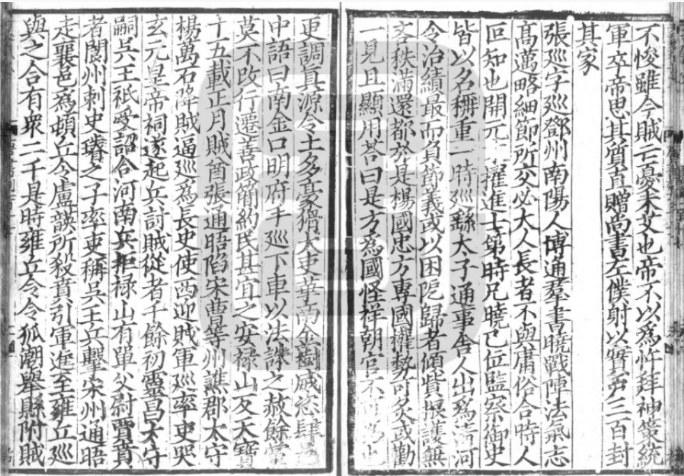 不悛雖今賊亡憂未艾也帝不以爲忤拜神策統
軍卒帝思其質直贈尚書左僕射以實戶三百封
其家
張巡字巡鄧州南陽人博通羣書曉戰陣法氣志
髙邁略細節所交必大人長者不與庸俗合時人
叵知也開元擢進士第時兄曉已位監察御史
皆以名稱重一時巡繇太子通事舍人出爲清河
令治績最而負節義或以困阨歸者傾貲振護無
吝秩滿還都於是楊國忠方專國權勢可炙或勸
一見且顯用荅曰是方爲國怪祥朝官不爲也
更調真源令土多豪猾大吏華南金樹威恣肆
中語曰南金口明府手巡下車以法誅之赦餘黨
莫不改行遷善政簡約民甚宜之安祿山反天寶
十五載正月賊酋張通晤陷宋曹等州譙郡太守
楊萬石降賊逼巡爲長史使西迎賊軍巡率吏哭
玄元皇帝祠遂起兵討賊從者千餘初靈昌太守
嗣吳王祗受詔合河南兵拒祿山有單父尉賈賁
者閬州刺史璿之子率吏稱吳王兵擊宋州通晤
走襄邑爲頓丘令盧韺所殺賁引軍進至雍丘巡
與之合有衆二千是時雍丘令令狐潮舉縣附賊